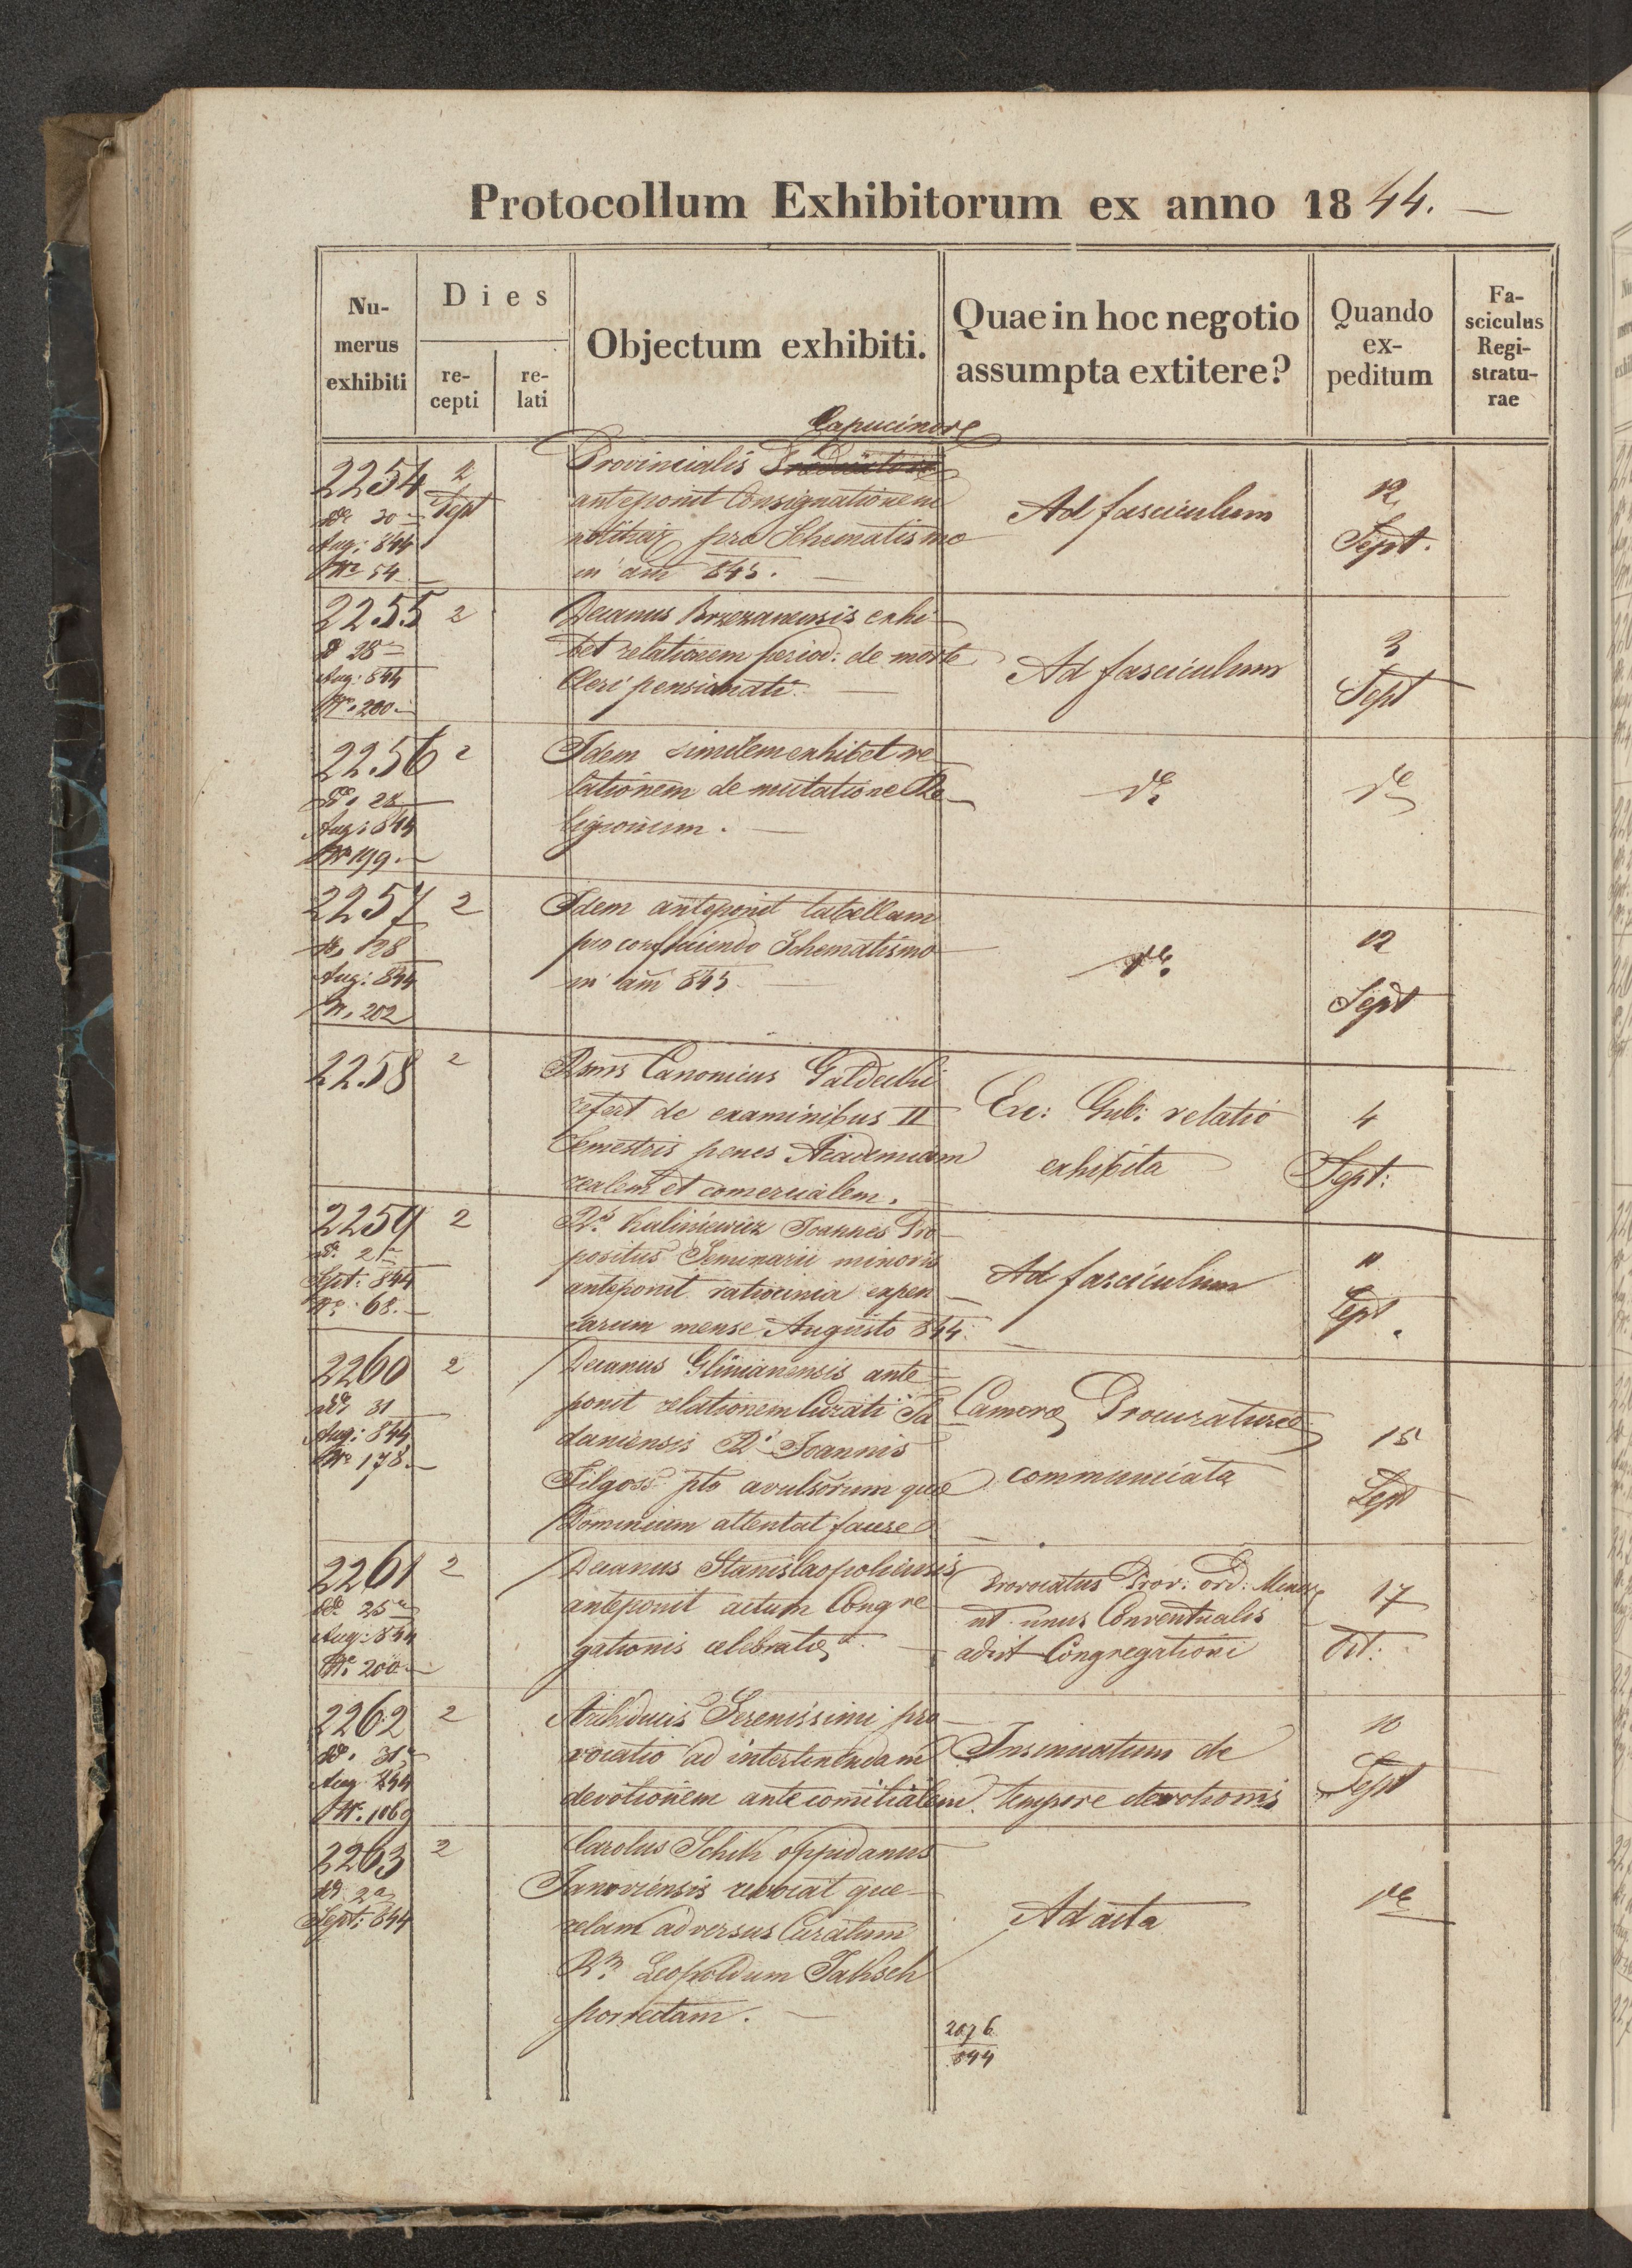 Protocollum Exhibitorum ex anno 1844.
Nu-
merus
exhibiti
Dies
re-
cepti
re-
lati
Objectum exhibiti.
Quae in hoc negotio
assumpta extitere?
Quando
ex-
peditum
Fa-
sciculus
Regi-
stratu-
rae
2254
30
Aug: 844
Nr 54
2
Sept
Capucinor
Provincialis
anteponit Consignationem
pro Schematismo
in an̄ 845.
Ad fasciculum
12
Sept.
2255
28
Aug: 844
Nr. 200
2
Decanus Brzezanensis exhi-
bet relationem period: de morte
Cleri pensionati.
Ad fasciculum
3
Sept
2256
28
Aug: 844
Nr 199.
2
Idem similem exhibet re
lationem de mutatione Re-
ligionum.
2257
28
Aug: 844
N. 202
2
Idem anteponit tabellam
pro conficiendo Schematismo
in an̄ 845
12
Sept
2258
2
Canonicus
refert de examinibus II
Semestris penes Academiam
realem et comercialem.
Exc: Gub: relatio
exhibita
4
Sept:
2259
2
Sept: 844
Nr. 68.
2
Rd. Kaliniewicz Joannes Pre
positus Seminarii minoris
anteponit ratiocinia expen
sarum mense Augusto 844.
Ad fasciculum
11
Sept.
2260
31
Aug: 844
Nr 178.
2
Decanus Glinianensis ante
ponit relationem Curati
daniensis Rdi Joannis
pto avulsorum quae
Dominium attentat facere
Camerae Procuraturae
communicata
15
Sept
2261
25
Aug: 844
Nr. 200
2
Decanus Stanislaopoliensis
anteponit actum Congre
gationis celebratae.
Provocatus Prov: ord:
ut unus Conventualis
adsit Congregationi
17
Oct:
2262
31
Aug 844
Nr. 1069
2
Archiducis Serenissimi pro
vocatio ad intertenendam
devotionem ante comitialem.
Insinuatum de
tempore devotionis
10
Sept
2263
2a
Sept: 844
2
Carolus Schik oppidanus
Janoviensis revocat que-
relam adversus Curatum
Rm. Leopoldum
porrectam.
Ad acta
2076
844